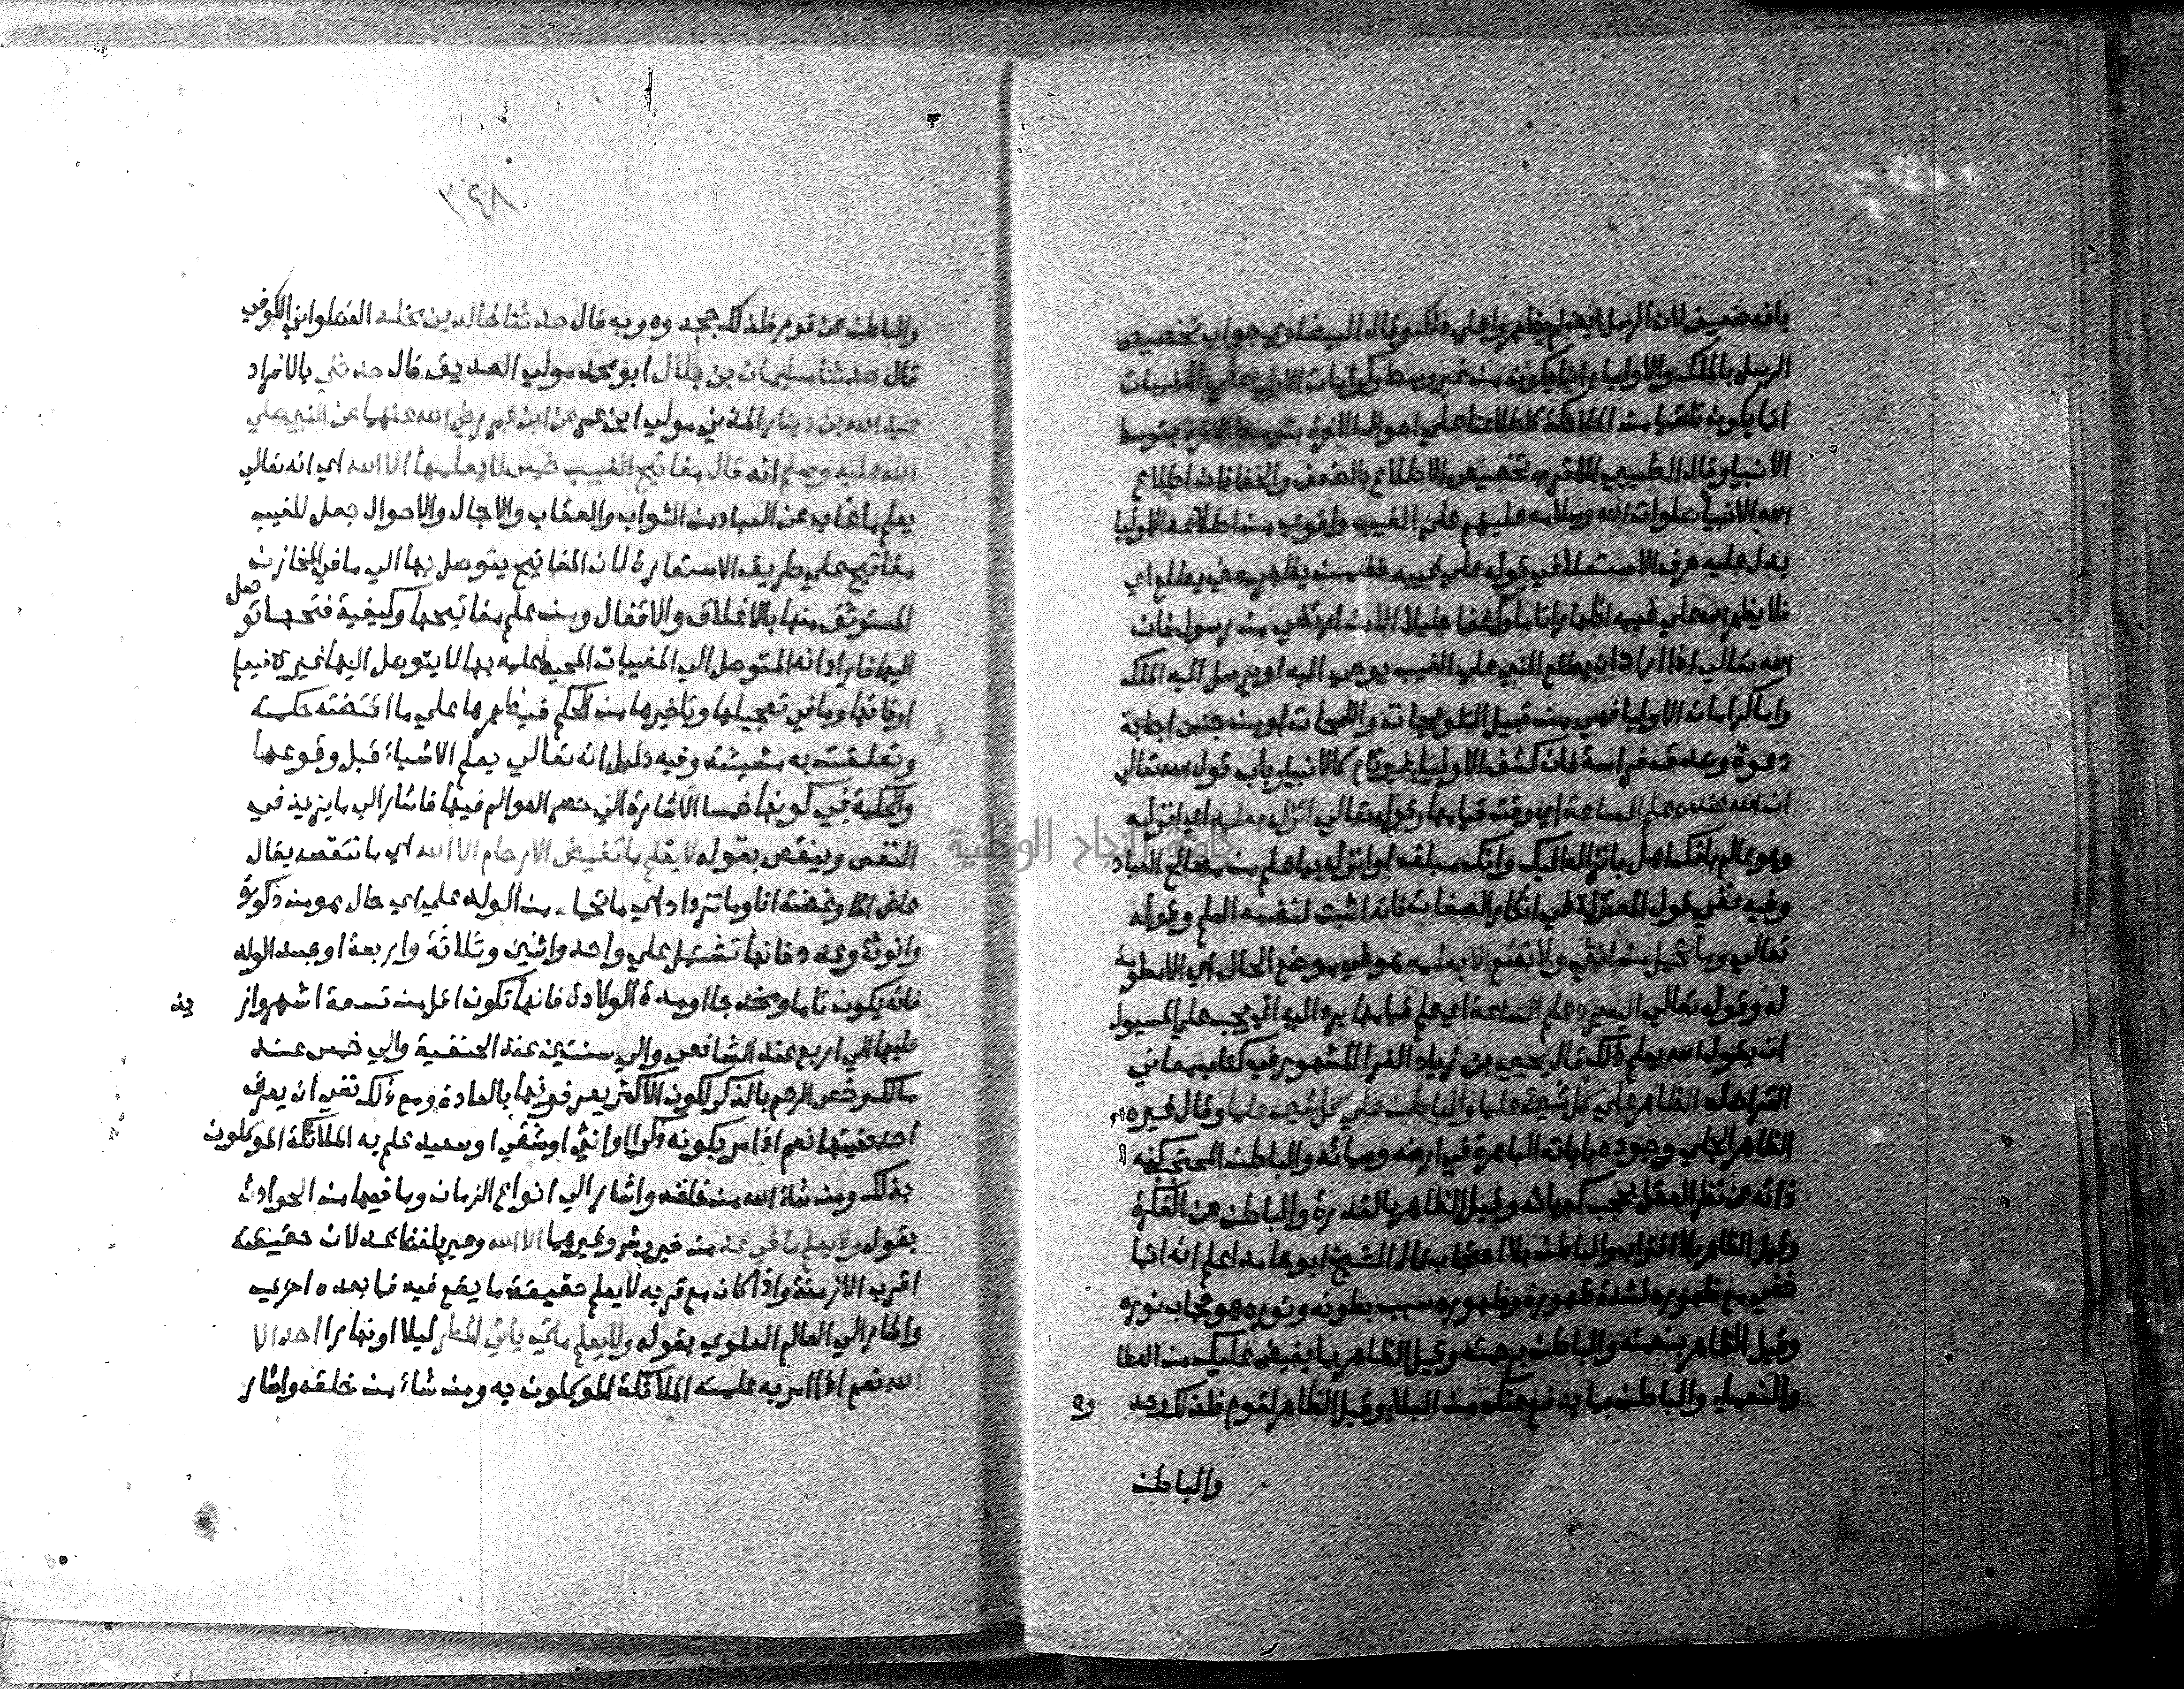 بانه ضعيف لان الرسل ايضا لم يظهروا علي ذلك وقال البيضاوي جواب تخصيص
الرسل بالملك والاوليا انما يكون من غير وسط وكرامات الاوليا علي المغيبات
انما يكون تلقيا من الملائكة كاطلاعنا علي احوال الاخرة بتوسط
الانبيا وقال الطيبي الاقرب تخصيص الاطلاع بالضعف والخفا فان اطلاع
الله الانبيا صلوات الله وسلامه عليهم علي الغيب واقوي من اطلاعه الاوليا
يدل عليه حرف الاستعلا في قوله علي غيبه فضمن يظهر معني يطلع اي
فلا يظهر الله علي غيبه اظهارا تاما وكشفا جليلا الا من ارتضي من رسول فان
الله تعالي اذا اراد ان يطلع النبي علي الغيب يوحي اليه او يرسل اليه الملك
واما كرامات الاوليا فهي من قبيل التلويحات واللمحات او من جنس اجابة
دعوة وصدق فراسة فان كشف الاوليا غير تام كالانبيا باب قول الله تعالي
ان الله عنده علم الساعة اي وقت قيامها وقوله تعالي انزله بعلمه اي انزله
وهو عالم بانك اهل بانزاله اليك وانك مبلغه او انزله بما علم من مصالح العباد
وفيه نفي قول المعتزلة في انكار الصفات فانه اثبت لنفسه العلم وقوله
تعالي وما تحمل من انثي ولا تضع الا بعلمه هو في موضع الحال اي الا معلومة
له وقوله تعالي اليه يرد علم الساعة اي علم قيامها يرد اليه اي يجب علي المسيول
ان يقول الله يعلم ذلك قال يحيي بن زياد الفرا المشهور في كتاب معاني
القران له الظاهر علي كل شي علما والباطن علي كل شي علما وقال غيره
الظاهر الجلي وجوده باياته الباهرة في ارضه وسمائه والباطن المحتجب كنه
ذاته عن نظر العقل بحجب كبريائه وقيل الظاهر بالقدرة والباطن عن الفكرة
وقيل الظاهر بلا اقتراب والباطن بلا احتجاب قال الشيخ ابو حامد اعلم انه انما
خفي مع ظهوره لشدة ظهوره وظهوره سبب بطونه ونوره هو حجاب نوره
وقيل الظاهر بنعمته والباطن برحمته وقيل الظاهر بما يفيض عليك من العطا
والنعما والباطن بما يدفع عنك من البلا وقيل الظاهر لقوم فلذلك وحد
وه
والباطن
٣٤٨
والباطن عن قوم فلذلك جحدوه وبه قال حدثنا خالد بن مخلد القطواني الكوفي
قال حدثنا سليمان بن بلال ابو محمد مولي الصديق قال حدثني بالافراد
عبد الله بن دينار المدني مولي ابن عمر عن ابن عمر رضي الله عنهما عن النبي صلي
الله عليه وسلم انه قال مفاتيح الغيب خمس لا يعلمها الا الله اي انه تعالي
يعلم ما غاب عن العباد من الثواب والعقاب والاجال والاحوال جعل للغيب
مفاتيح علي طريق الاستعارة لان المفاتيح يتوصل بها الي ما في المخازن
المستوثق منها بالاغلاق والاقفال ومن علم مفاتيحها وكيفية فتحها تو
صل
اليها فاراد انه المتوصل الي المغيبات المحيط علمه بها لا يتوصل اليها غيره فيعلم
اوقاتها وما في تعجيلها وتاخيرها من الحكم فيظهرها علي ما اقتضته حكمته
وتعلقت به مشيئته وفيه دليل انه تعالي يعلم الاشياء قبل وقوعها
والحكمة في كونها خمسا الاشارة الي حصر العوالم فيها فاشار الي ما يزيد في
النفس وينقص بقوله لا يعلم ما تغيض الارحام الا الله اي ما تنقصه يقال
غاض الما وغضته انا وما تزداد اي ما تحمله من الولد علي اي حال هو من ذكورة
وانوثة وعدد فانها تشتمل علي واحد واثنين وثلاثة واربعة او جسد الولد
فانه يكون تاما ومخدجا او مدة الولادة فانها تكون اقل من تسعة اشهر واز
يد
عليها الي اربع عند الشافعي والي سنتين عند الحنفية والي خمس عند
مالك وخص الرحم بالذكر لكون الاكثر يعرفونها بالعادة ومع ذلك نفي ان يعرف
احد حقيقتها نعم اذا امر بكونه ذكرا او انثي او شقي او سعيد علم به الملائكة الموكلون
بذلك ومن شاء الله من خلقه واشار الي انواع الزمان وما فيها من الحوادث
بقوله ولا يعلم ما في غد من خير وشر وغيرهما الا الله وعبر بلفظ غد لان حقيقته
اقرب الازمنة واذا كان مع قربه لا يعلم حقيقة ما يقع فيه فما بعده احري
واشار الي العالم العلوي بقوله ولا يعلم متي ياتي المطر ليلا او نهارا احد الا
الله نعم اذا امر به علمته الملائكة الموكلون به ومن شاء من خلقه واشار